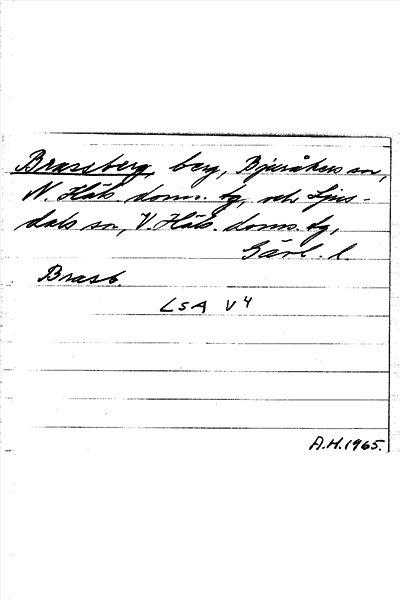 Brasseberg, berg, Bjuråkers sn,
N. Häls. doms. tg, och Ljus-
dals sn, V. Häls. doms. tg,
Gävl. l.
Brassb.
LSA V4
A.H. 1965.